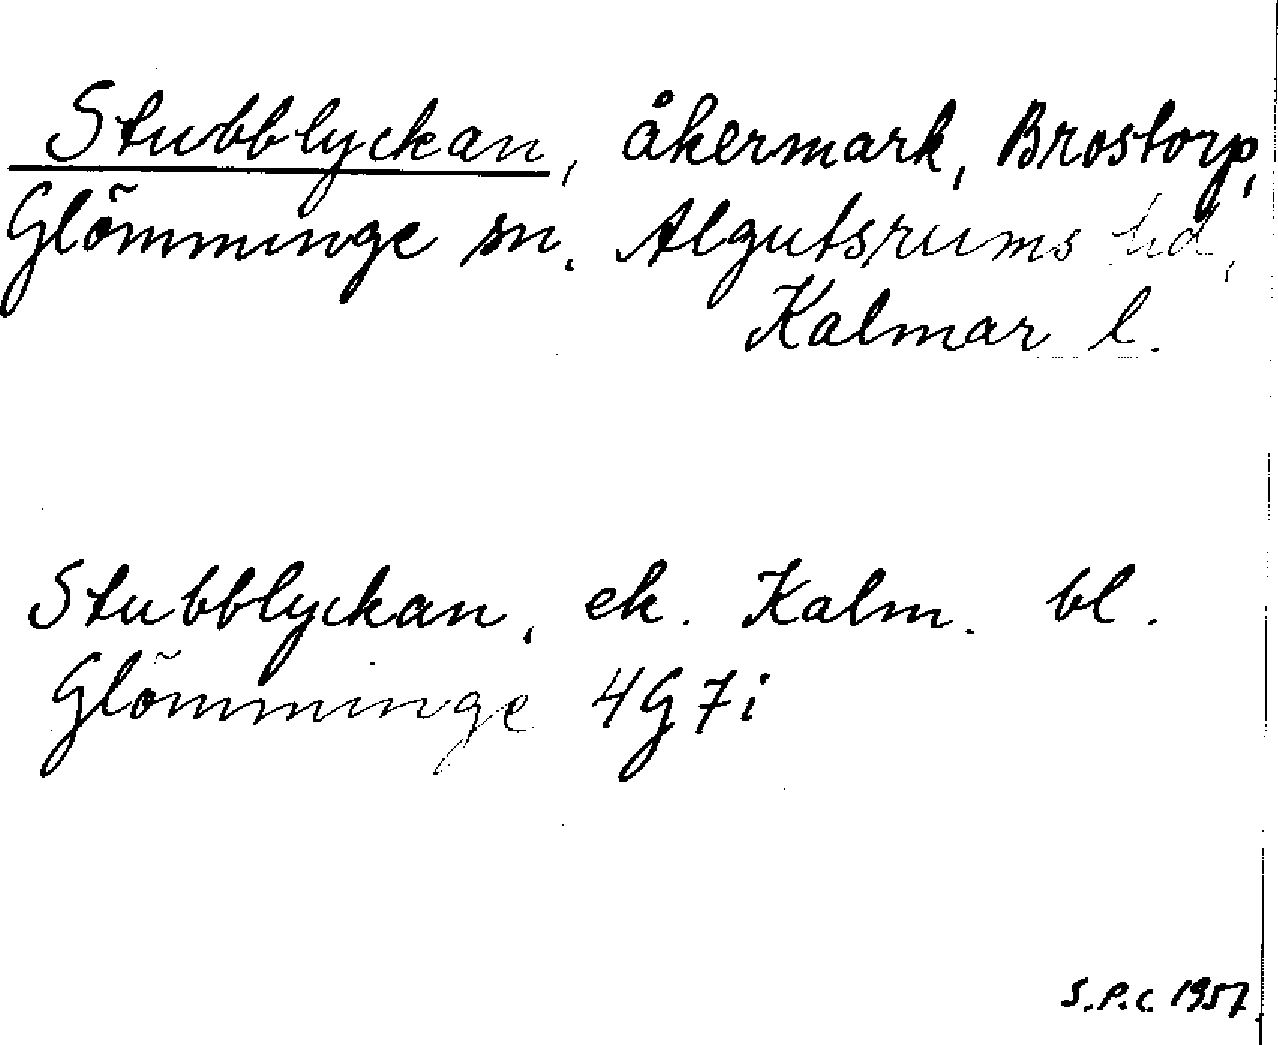 Stubblyckan, åkermark, Brostorp,
Glömminge sn. Algutsrums hd,
Kalmar l.
Stubblyckan, ek. Kalm. bl.
Glömminge 4G7i
S.P.C. 1957